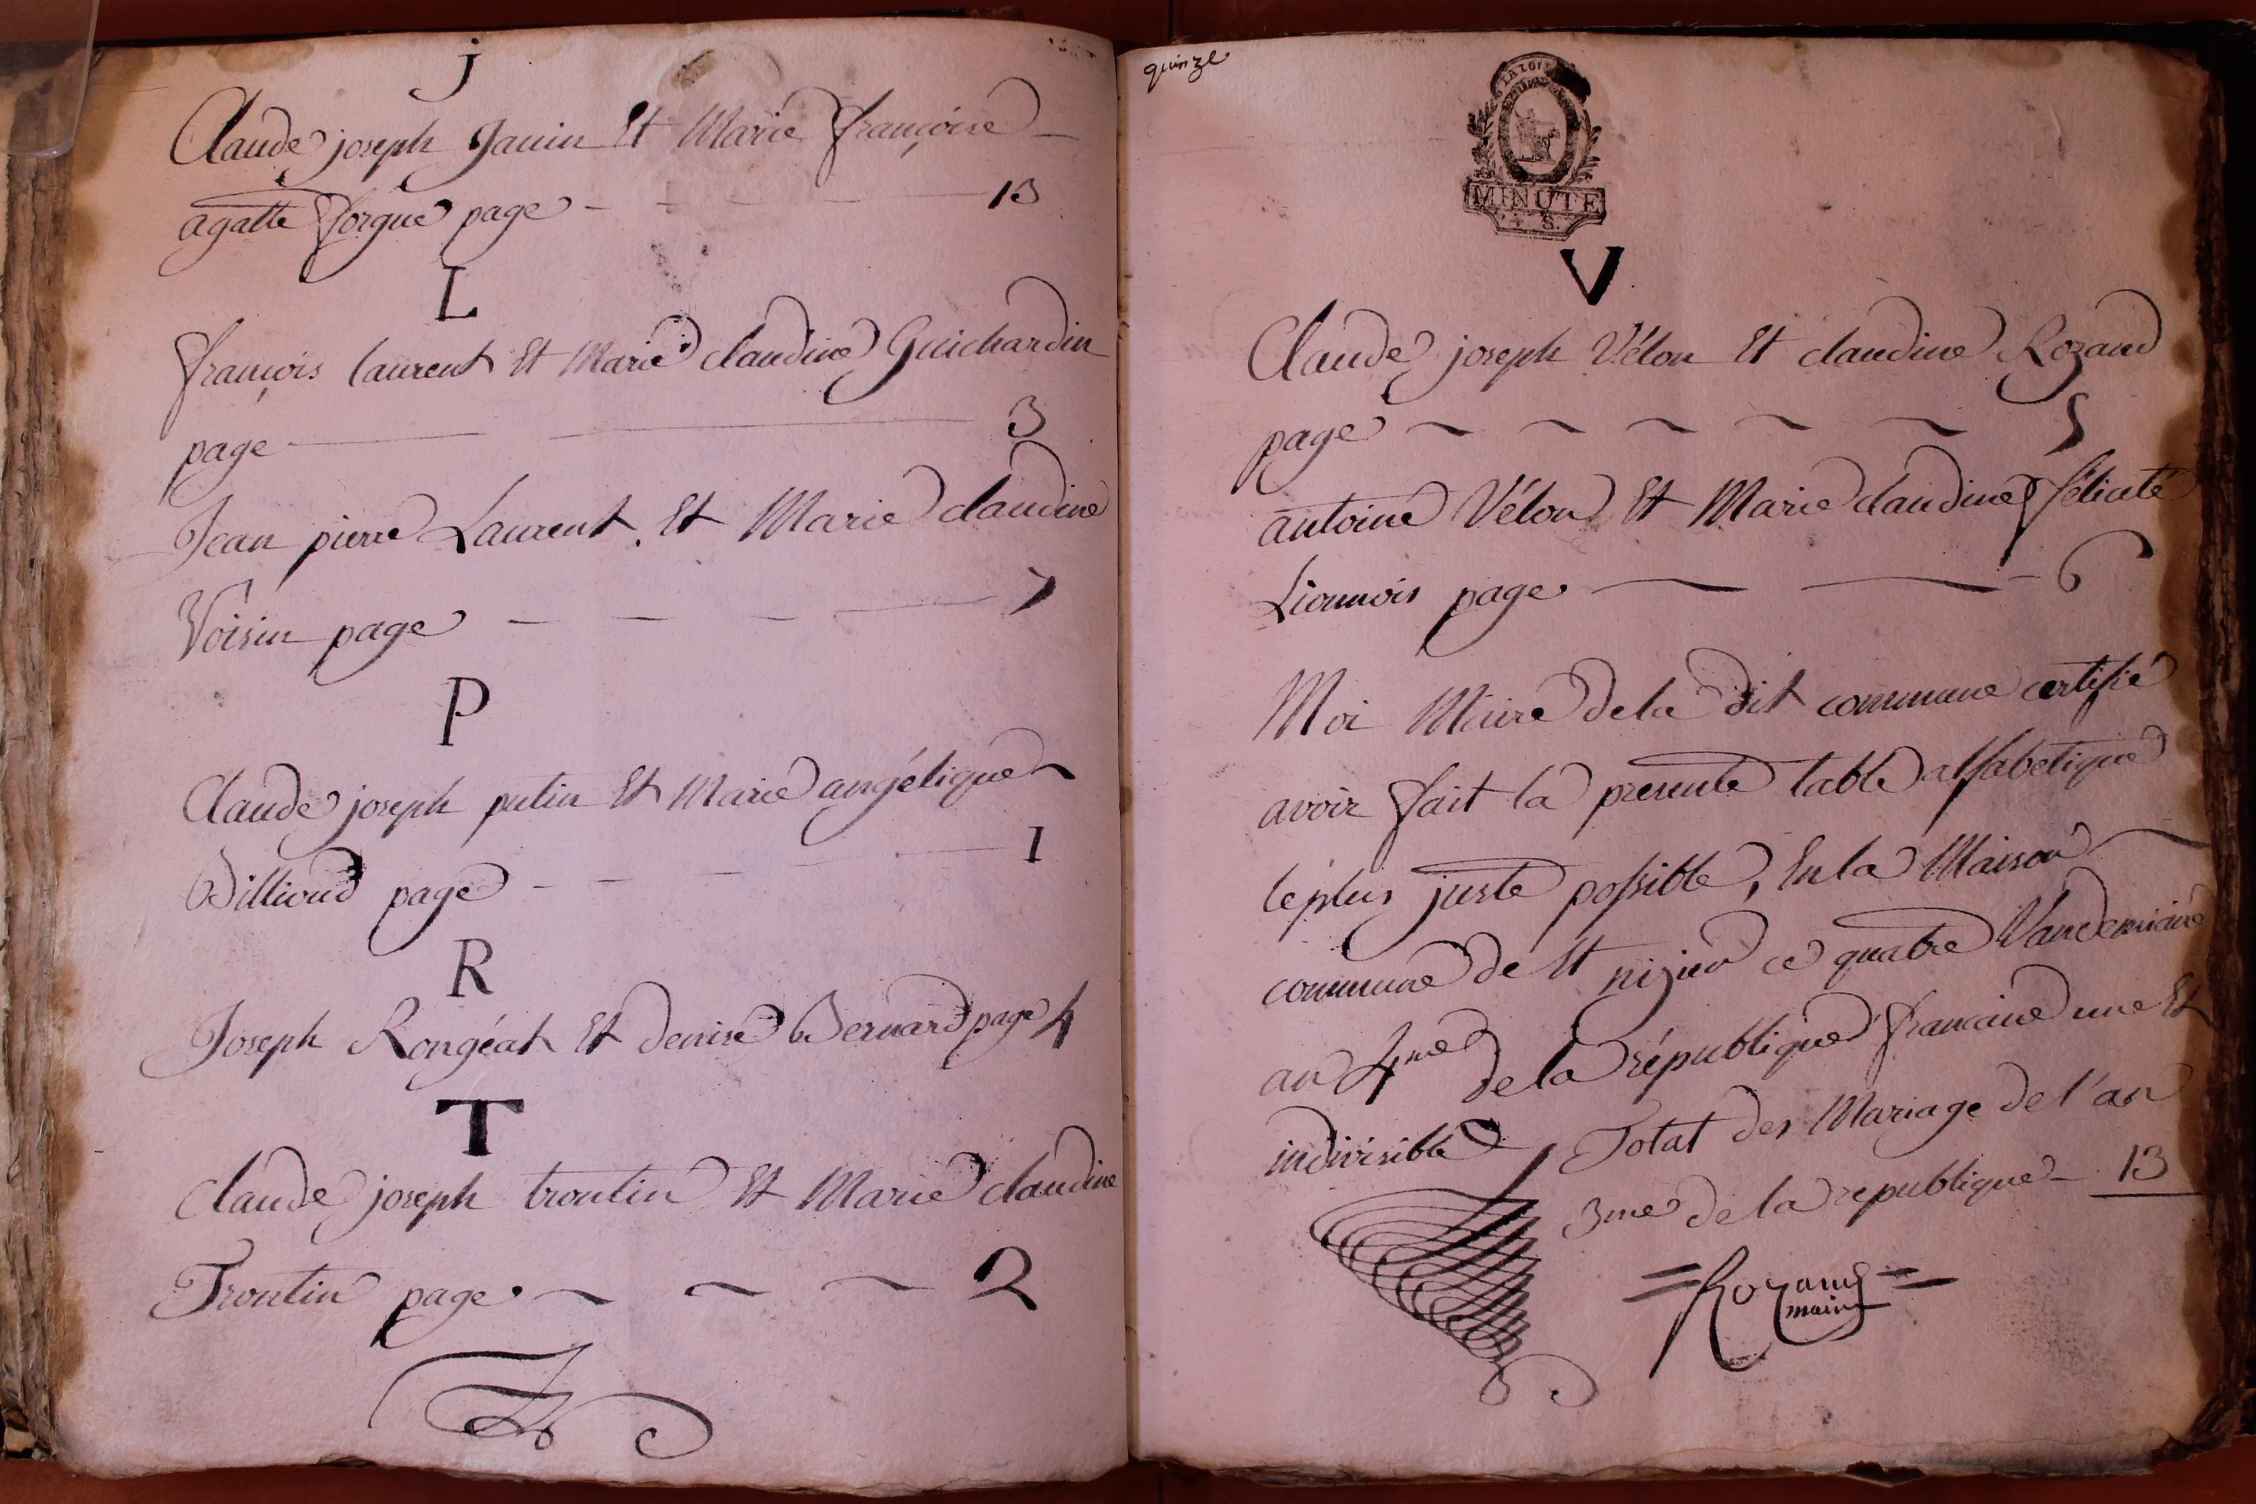 j
Claude joseph janin Et Marie françoise
agatte forgue page 13
L
françois laurent Et Marie claudine Guichardin
page 3
Jean pierre Laurent Et Marie claudine
Voisin page 7
P
Claude joseph putin Et Marie angélique
Billioud page 1
R
Joseph Rongéat Et denise Bernard page 4
T
claude joseph trontin Et Marie claudine
Trontin page 2
quinze
LA LOI
MINUTE
S.
V
Claude joseph Vélon Et claudine Rozand
page 5
antoine Vélon Et Marie claudine félicité
Lionnois page 6
Moi Maire de la dit commune certifié
avoir fait la presente table alfabetique
le plus juste possible, En la Maison
commune de St nizier ce quatre Vandemiaire
an 4me de la république francaise une Et
indivisible Total des Mariage de l'an
3me de la republique 13
Rozand
maire